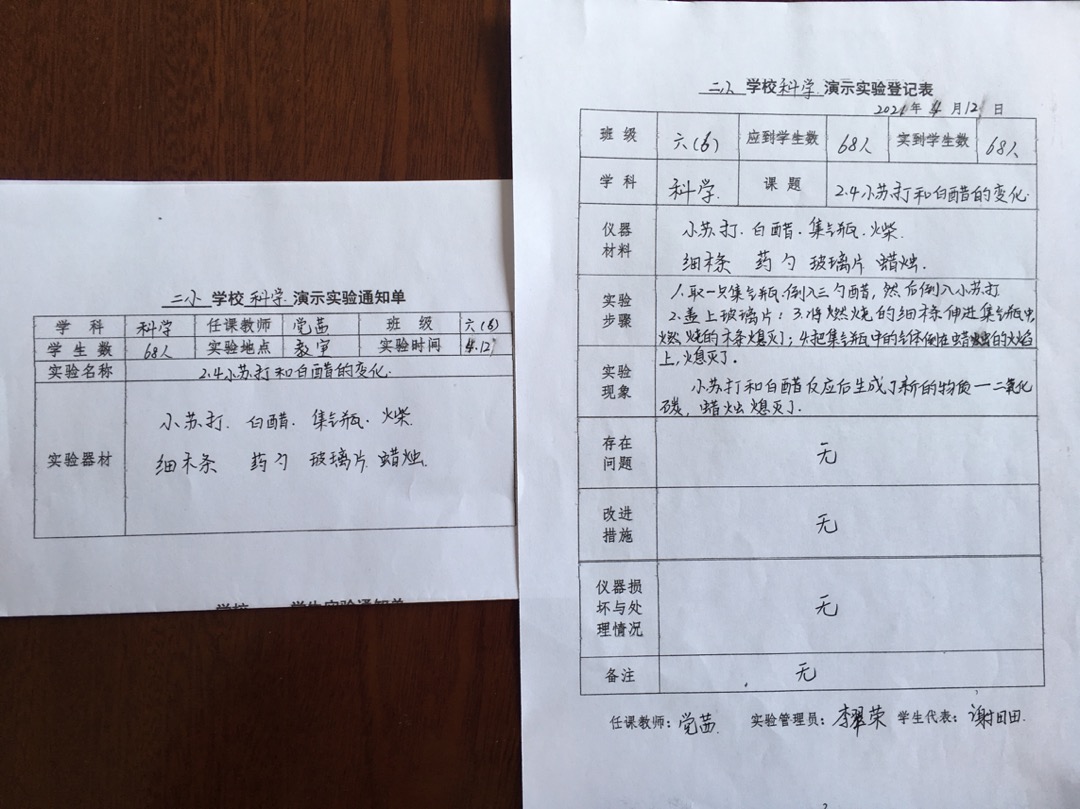 二小 学校 科学 演示实验通知单
学 科 科学 任课教师 党茜 班 级 六(6)
学 生 数 68人 实验地点 教室 实验时间 4.12
实验名称 2.4小苏打和白醋的变化.
实验器材
小苏打. 白醋. 集气瓶. 火柴.
细木条 药勺 玻璃片 蜡烛.
二小 学校 科学 演示实验登记表
2021年 4 月 12 日
班 级 六(6) 应到学生数 68人 实到学生数 68人
学 科 科学. 课 题 2.4小苏打和白醋的变化.
仪器
材料
小苏打. 白醋. 集气瓶. 火柴.
细木条 药勺 玻璃片 蜡烛.
实验
步骤
1.取一只集气瓶,倒入三勺醋,然后倒入小苏打
2.盖上玻璃片;3.将燃烧的细木条伸进集气瓶中,
燃烧的木条熄灭了;4.把集气瓶中的气体倒在蜡烛的火焰
上,熄灭了.
实验
现象
小苏打和白醋反应后生成了新的物质一二氧化
碳,蜡烛熄灭了.
存在
问题
无
改进
措施
无
仪器损
坏与处
理情况
无
备注 无
任课教师:党茜 实验管理员:李翠荣 学生代表:谢田田.